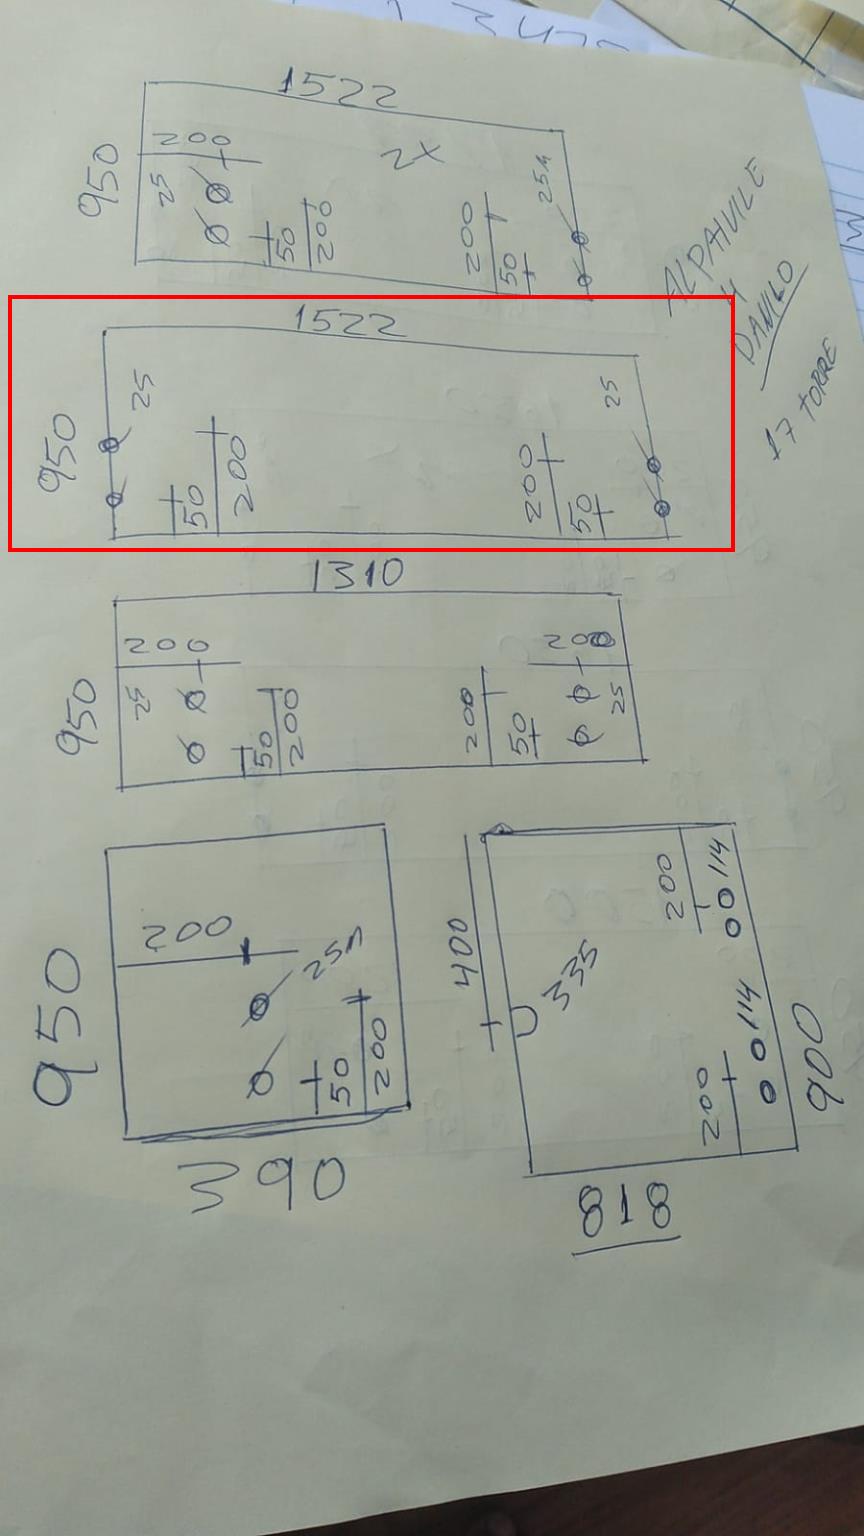 1522
950
200
2X
25
50
200
200
50
25n
ALPAIVILE
4
DANILO
17 TORRE
1522
950
25
50
200
200
50
25
1310
950
200
25
50
200
200
50
200
25
950
200
25n
50
200
390
400
335
200
114
114
200
900
818